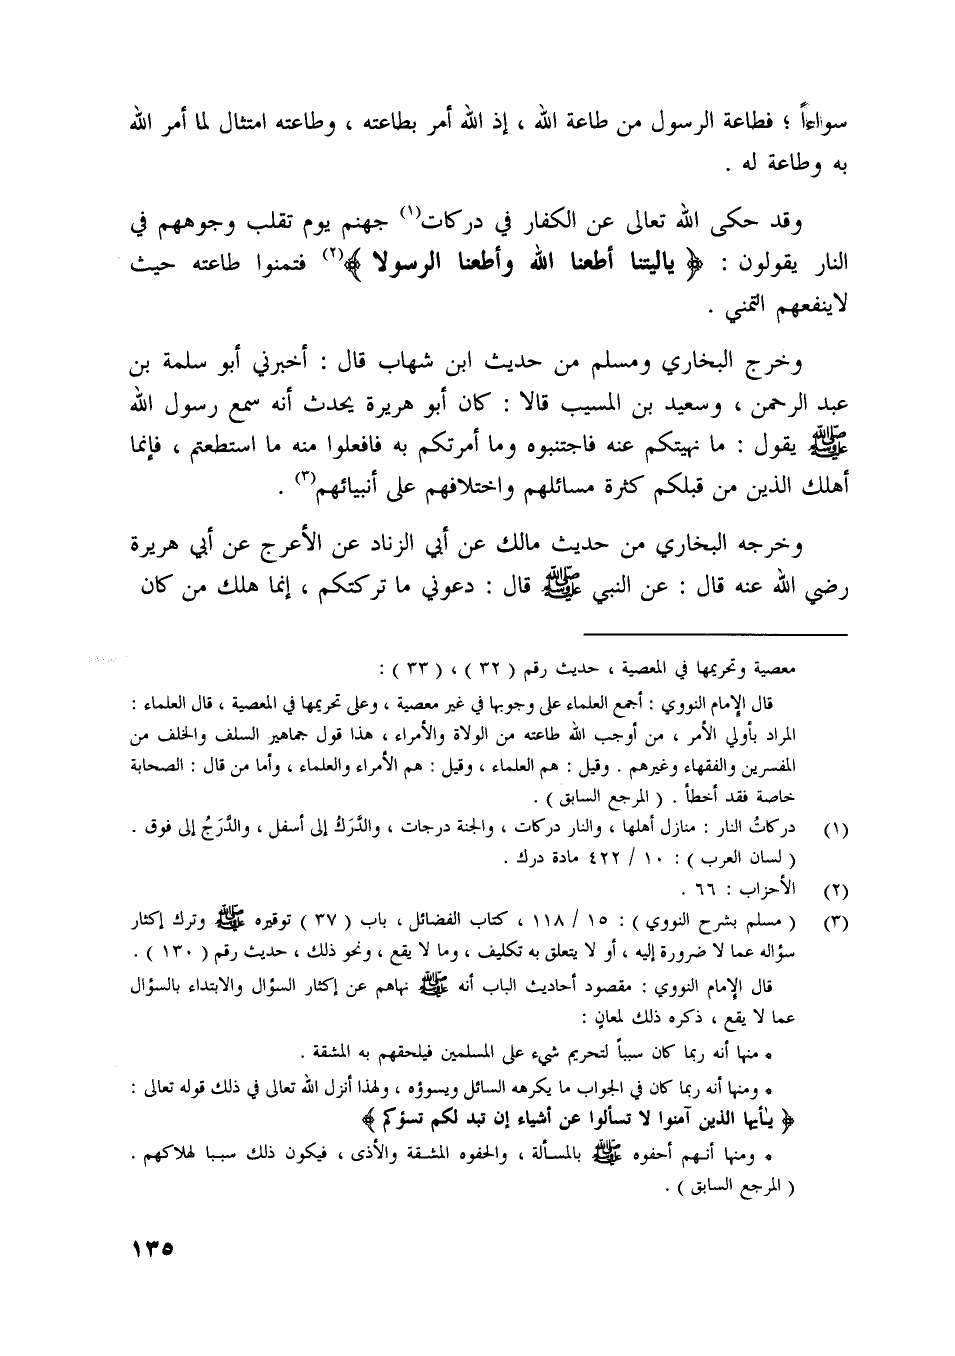 سواءاً ؛ فطاعة الرسول من طاعة الله ، إذ الله أمر بطاعته ، وطاعته امتثال لما أمر الله
به وطاعة له .
وقد حكى الله تعالى عن الكفار في دركات(١) جهنم يوم تقلب وجوههم في
النار يقولون : ﴿ ياليتنا أطعنا الله وأطعنا الرسولا ﴾(٢) فتمنوا طاعته حيث
لاينفعهم التمني .
وخرج البخاري ومسلم من حديث ابن شهاب قال : أخبرني أبو سلمة بن
عبد الرحمن ، وسعيد بن المسيب قالا : كان أبو هريرة يحدث أنه سمع رسول الله
ﷺ يقول : ما نهيتكم عنه فاجتنبوه وما أمرتكم به فافعلوا منه ما استطعتم ، فإنما
أهلك الذين من قبلكم كثرة مسائلهم واختلافهم على أنبيائهم(٣) .
وخرجه البخاري من حديث مالك عن أبي الزناد عن الأعرج عن أبي هريرة
رضي الله عنه قال : عن النبي ﷺ قال : دعوني ما تركتكم ، إنما هلك من كان
معصية وتحريمها في المعصية ، حديث رقم ( ٣٢ ) ، ( ٣٣ ) :
قال الإمام النووي : أجمع العلماء على وجوبها في غير معصية ، وعلى تحريمها في المعصية ، قال العلماء :
المراد بأولي الأمر ، من أوجب الله طاعته من الولاة والأمراء ، هذا قول جماهير السلف والخلف من
المفسرين والفقهاء وغيرهم . وقيل : هم العلماء ، وقيل : هم الأمراء والعلماء ، وأما من قال : الصحابة
خاصة فقد أخطأ . ( المرجع السابق ) .
(١) دركاتُ النار : منازل أهلها ، والنار دركات ، والجنة درجات ، والدَّرَكُ إلى أسفل ، والدَّرَجُ إلى فوق .
( لسان العرب ) : ١٠ / ٤٢٢ مادة درك .
(٢) الأحزاب : ٦٦ .
(٣) ( مسلم بشرح النووي ) : ١٥ / ١١٨ ، كتاب الفضائل ، باب ( ٣٧ ) توقيره ﷺ وترك إكثار
سؤاله عما لا ضرورة إليه ، أو لا يتعلق به تكليف ، وما لا يقع ، ونحو ذلك ، حديث رقم ( ١٣٠ ) .
قال الإمام النووي : مقصود أحاديث الباب أنه ﷺ نهاهم عن إكثار السؤال والابتداء بالسؤال
عما لا يقع ، ذكره ذلك لمعانٍ :
* منها أنه ربما كان سبباً لتحريم شيء على المسلمين فيلحقهم به المشقة .
* ومنها أنه ربما كان في الجواب ما يكرهه السائل ويسوؤه ، ولهذا أنزل الله تعالى في ذلك قوله تعالى :
﴿ يٰأيها الذين آمنوا لا تسألوا عن أشياء إن تبد لكم تسؤكم ﴾
* ومنها أنهم أحفوه ﷺ بالمسألة ، والحفوه المشقة والأذى ، فيكون ذلك سببا لهلاكهم .
( المرجع السابق ) .
١٣٥